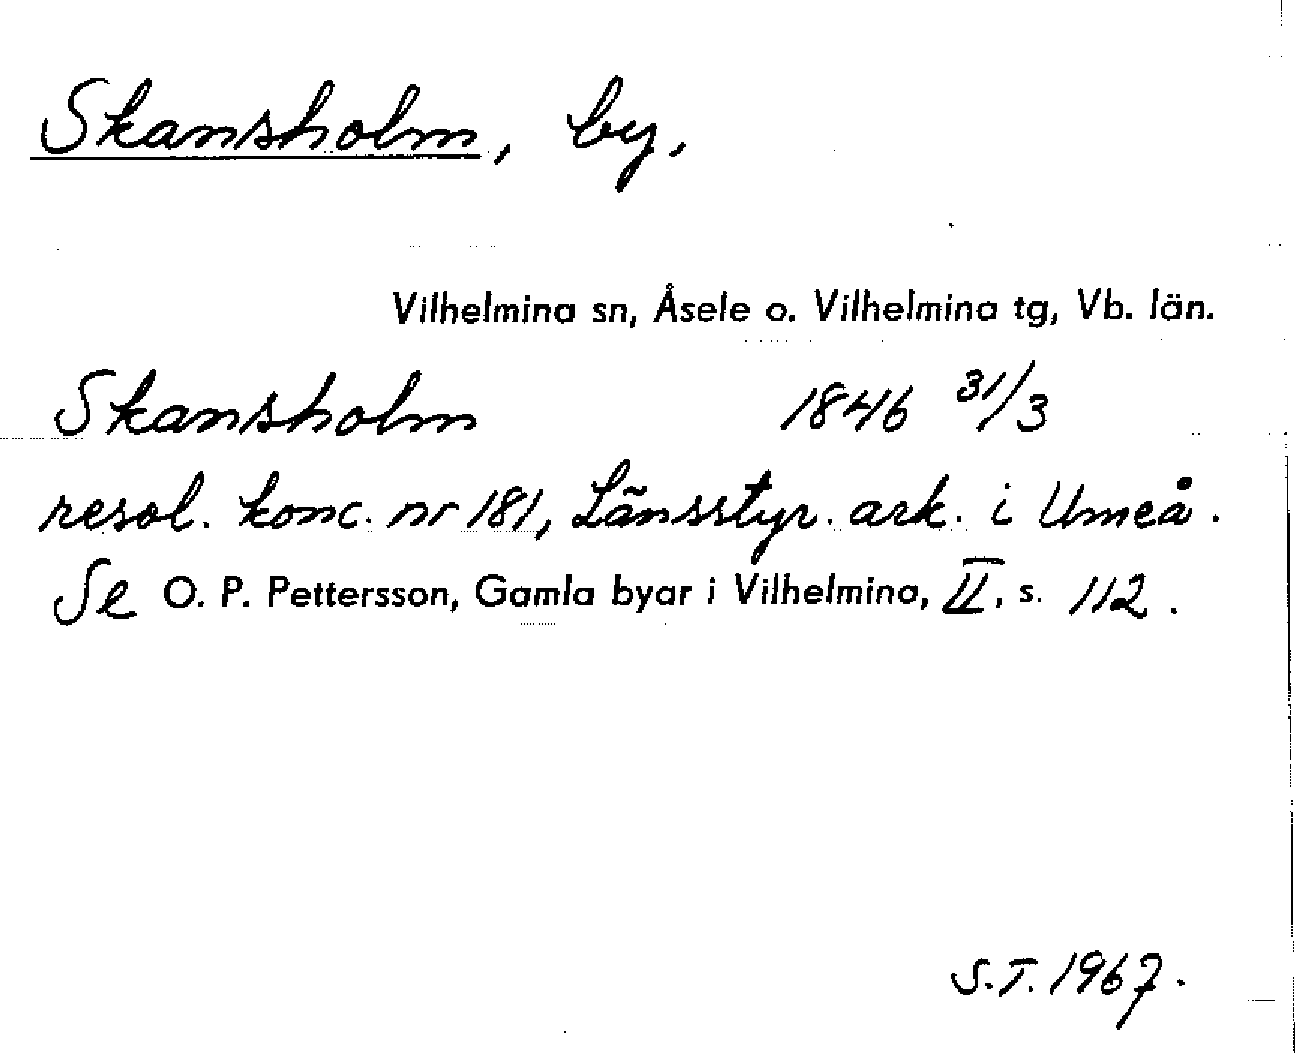 Skansholm, by.
Vilhelmina sn, Åsele o. Vilhelmina tg, Vb. län.
Skansholm 1846 31/3
resol. konc. nr 181, Länsstyr. ark. i Umeå.
Se O. P. Pettersson, Gamla byar i Vilhelmina, II, s. 112.
S.T. 1967.